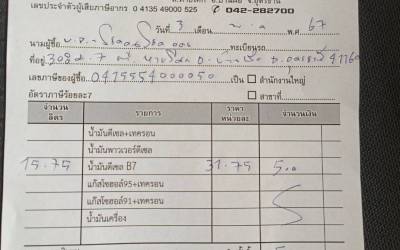 เลขประจำตัวผู้เสียภาษีอากร 0 4135 49000 525 042-282700
วันที่ 3 เดือน พ.ค. พ.ศ. 67
นามผู้ซื้อ ทะเบียนรถ
ที่อยู่ 308 ม.7 จ.อุดรธานี 41160
เลขภาษีของผู้ซื้อ 0415554000050 เป็น สำนักงานใหญ่
อัตราภาษีร้อยละ7 สาขาที่
จำนวน ลิตร รายการ ราคา หน่วยละ จำนวนเงิน
น้ำมันดีเซล+เทครอน
น้ำมันพาวเวอร์ดีเซล
15.75 น้ำมันดีเซล B7 31.75 500
แก๊สโซฮอล์95+เทครอน
แก๊สโซฮอล์91+เทครอน
น้ำมันเครื่อง